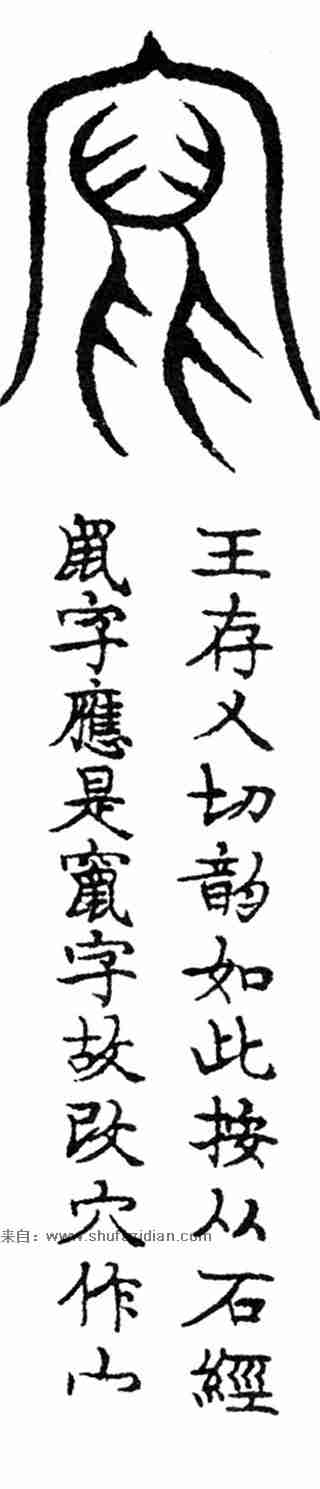 王存乂切韵如此按从石經
鼠字應是竄字故改穴作宀
来自：www.shufazidian.com